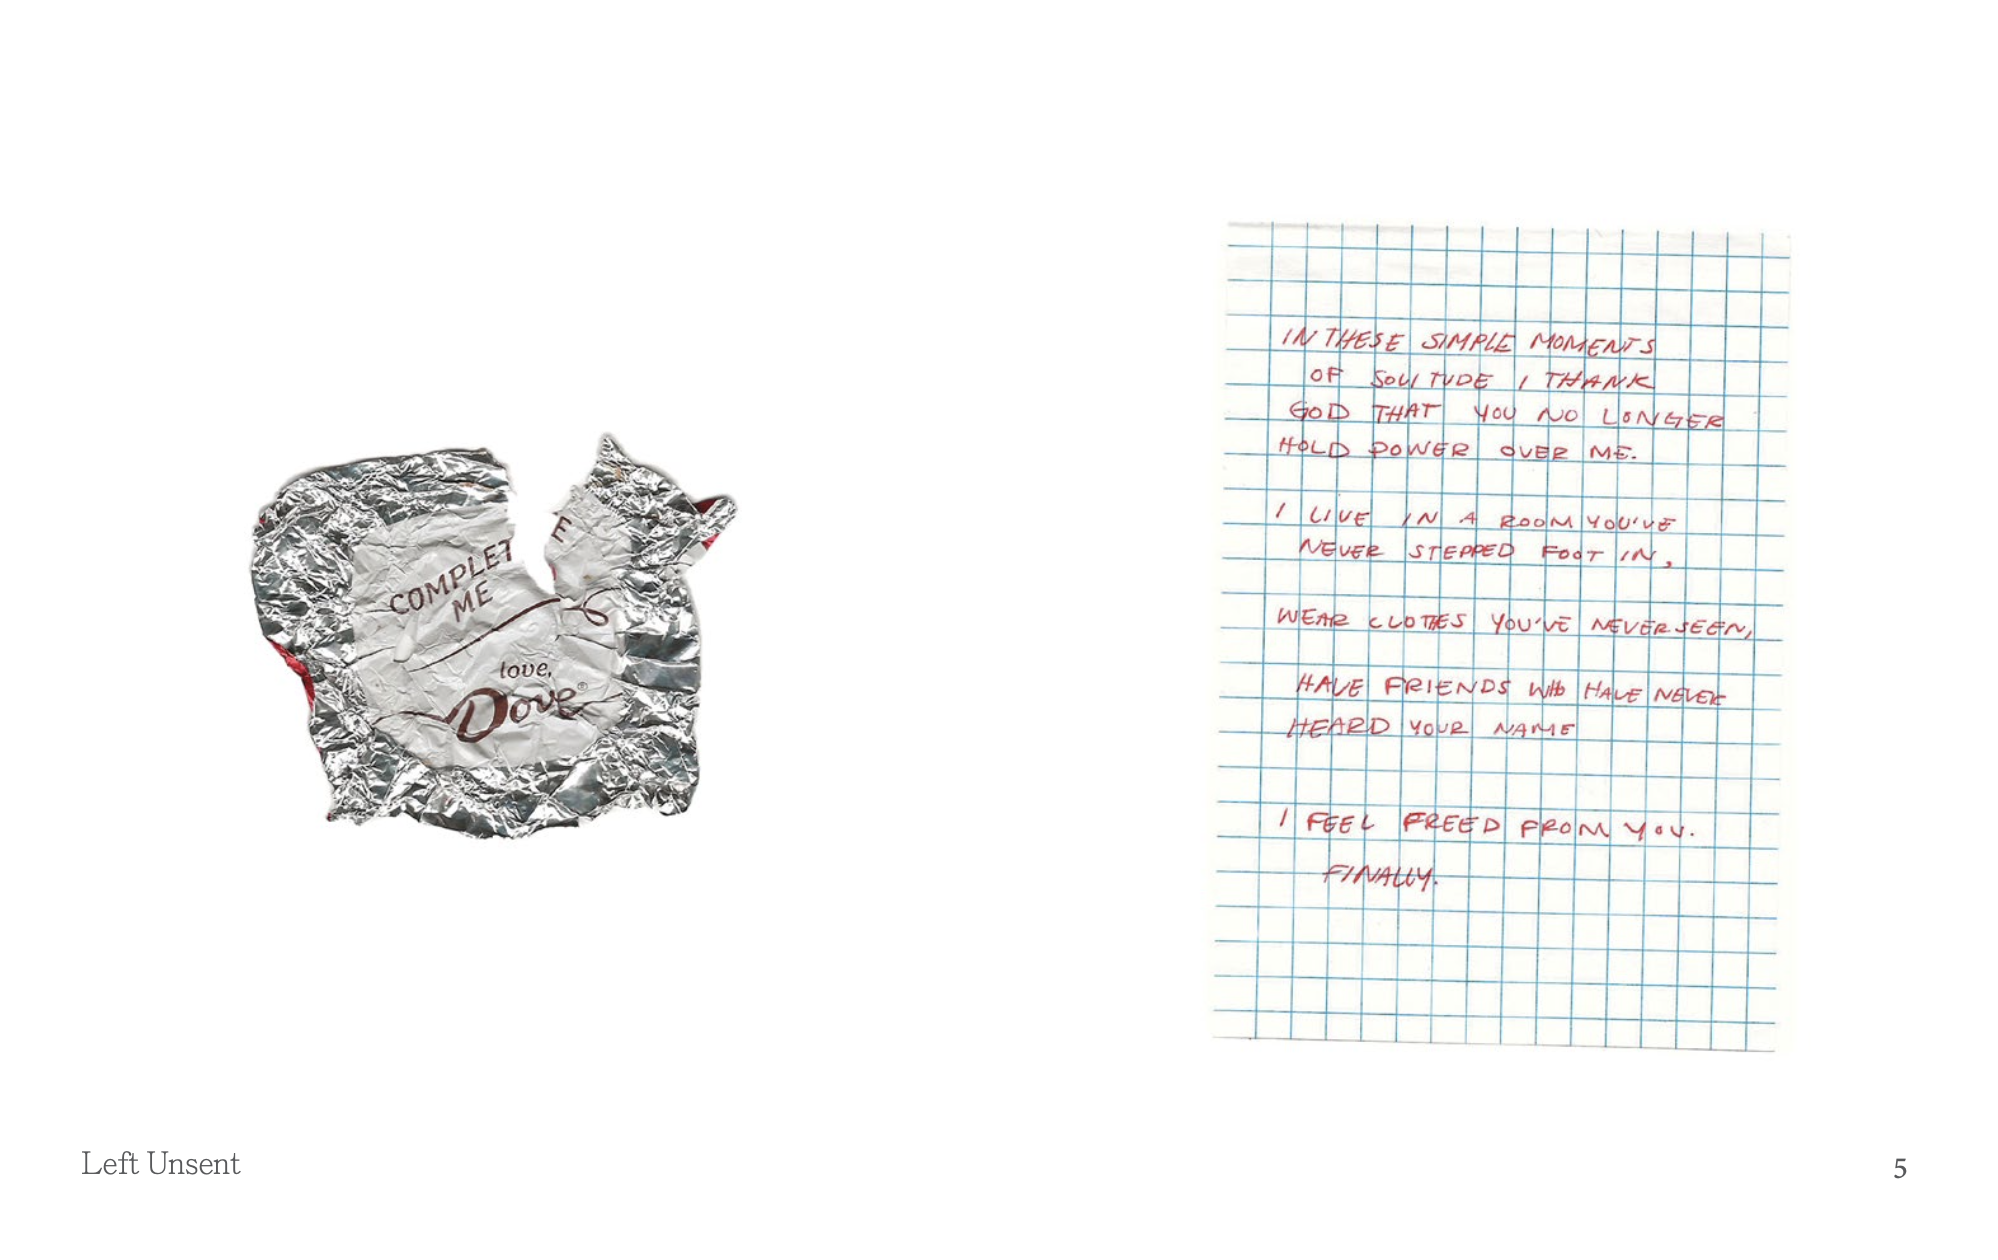 COMPLET E
ME
love,
Dove®
IN THESE SIMPLE MOMENTS
OF SOLITUDE I THANK
GOD THAT YOU NO LONGER
HOLD POWER OVER ME.
I LIVE IN A ROOM YOU'VE
NEVER STEPPED FOOT IN,
WEAR CLOTHES YOU'VE NEVER SEEN,
HAVE FRIENDS WHO HAVE NEVER
HEARD YOUR NAME
I FEEL FREED FROM YOU.
FINALLY.
Left Unsent
5